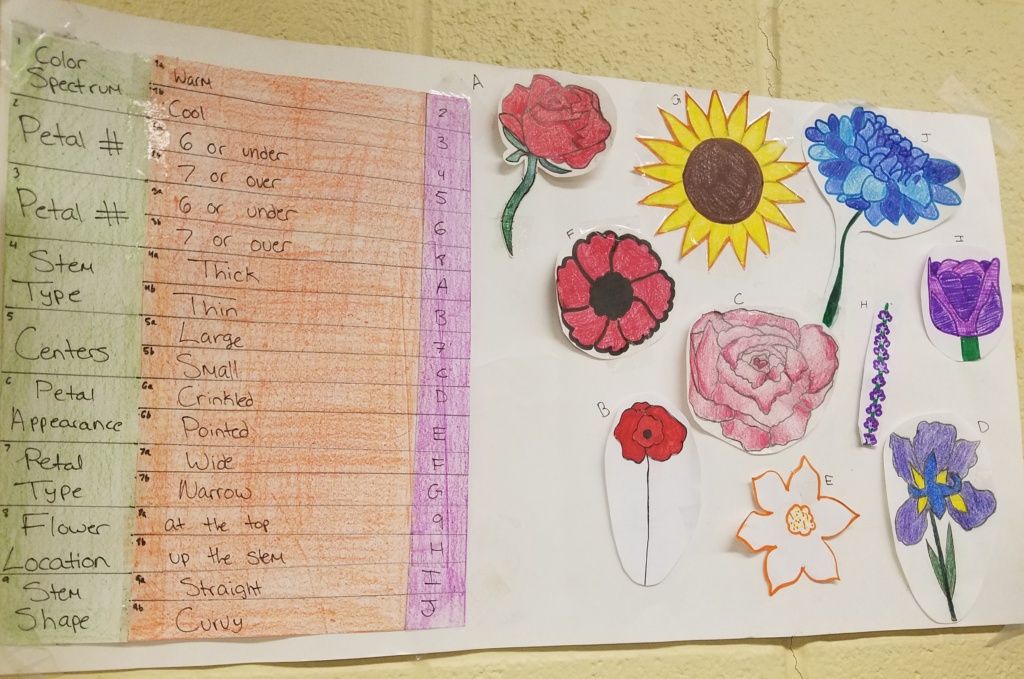 1
Color
Spectrum
2
Petal #
3
Petal #
4
Stem
Type
5
Centers
6
Petal
Appearance
7
Petal
Type
8
Flower
Location
9
Stem
Shape
1a Warm
1b Cool
2a 6 or under
2b 7 or over
3a 6 or under
3b 7 or over
4a Thick
4b Thin
5a Large
5b Small
6a Crinkled
6b Pointed
7a Wide
7b Narrow
8a at the top
8b up the stem
9a Straight
9b Curvy
2
3
4
5
6
8
A
B
7
C
D
E
F
G
9
H
I
J
A
G
J
F
I
C
H
B
E
D